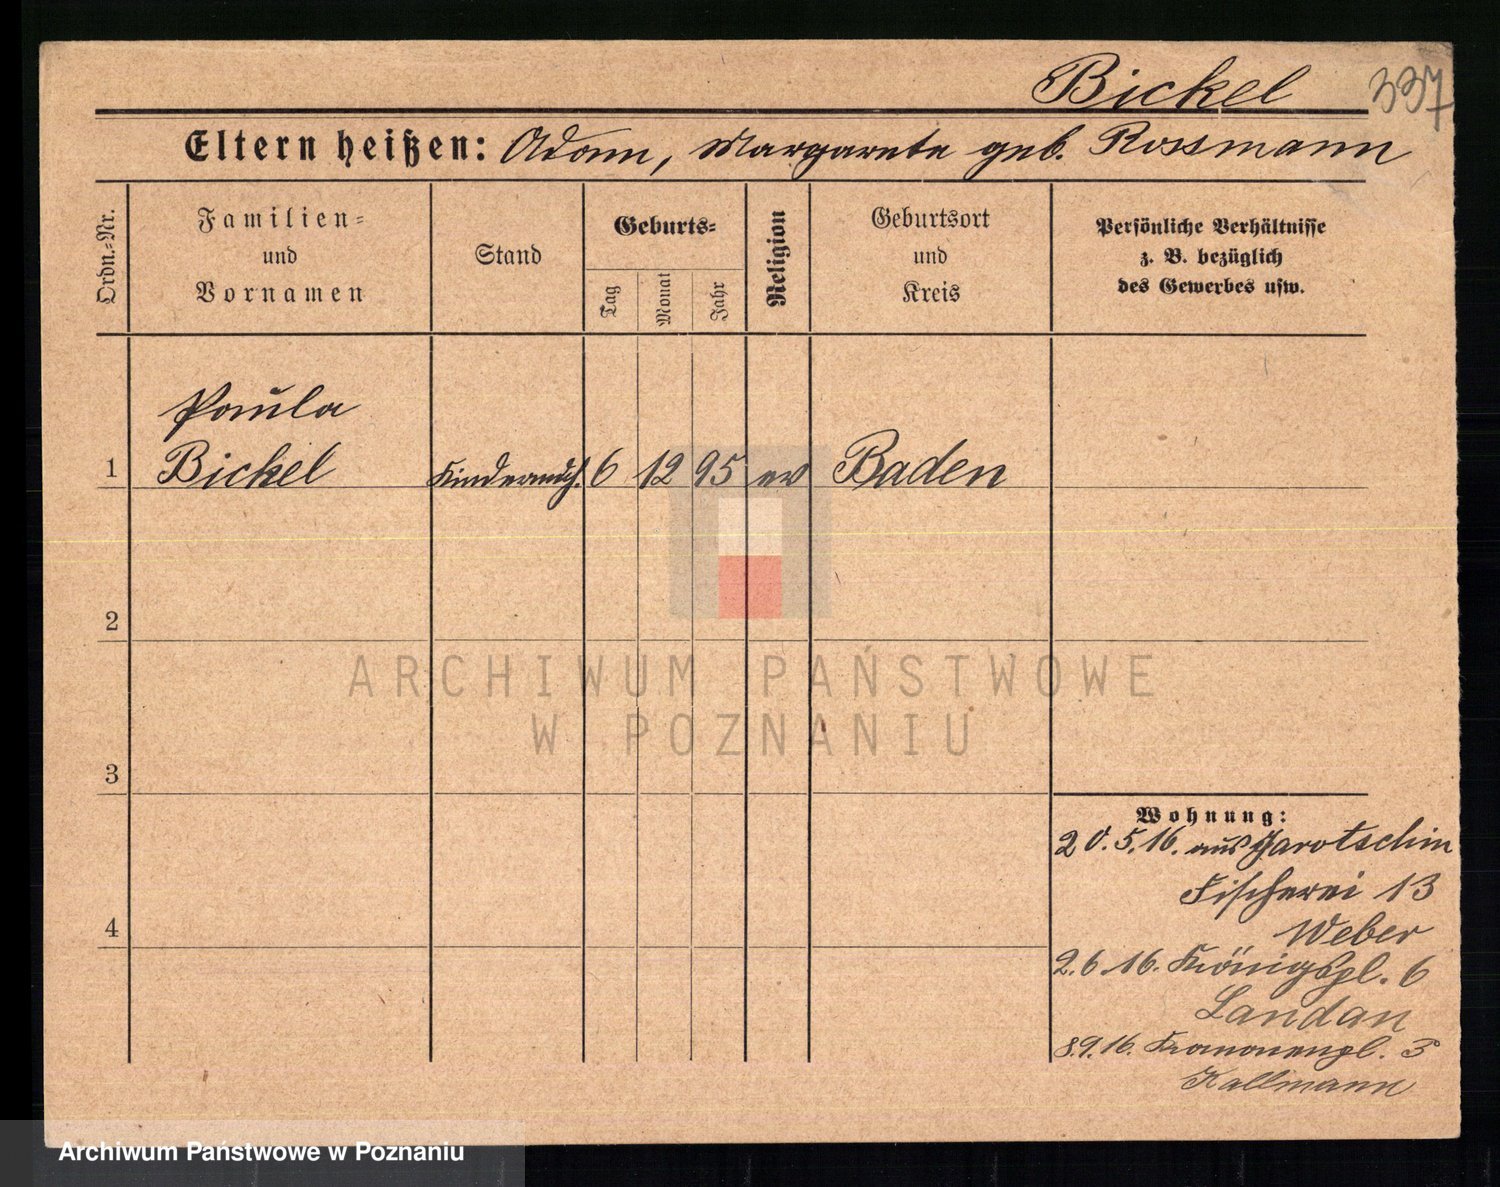 Bickel 337
Eltern heißen: Adam, Margarete geb. Rossmann
Ordn.-Nr.
Familien-
und
Vornamen
Stand
Geburts-
Tag
Monat
Jahr
Religion
Geburtsort
und
Kreis
Persönliche Verhältnisse
z. B. bezüglich
des Gewerbes usw.
Paula
1 Bickel 6 12 95 ev Baden
2
ARCHIWUM PAŃSTWOWE
W POZNANIU
3
Wohnung:
20.5.16. aus Jarotschin
Fischerei 13
Weber
4
2.6.16. Königspl. 6
Landau
8.9.16. 3
Kallmann
Archiwum Państwowe w Poznaniu